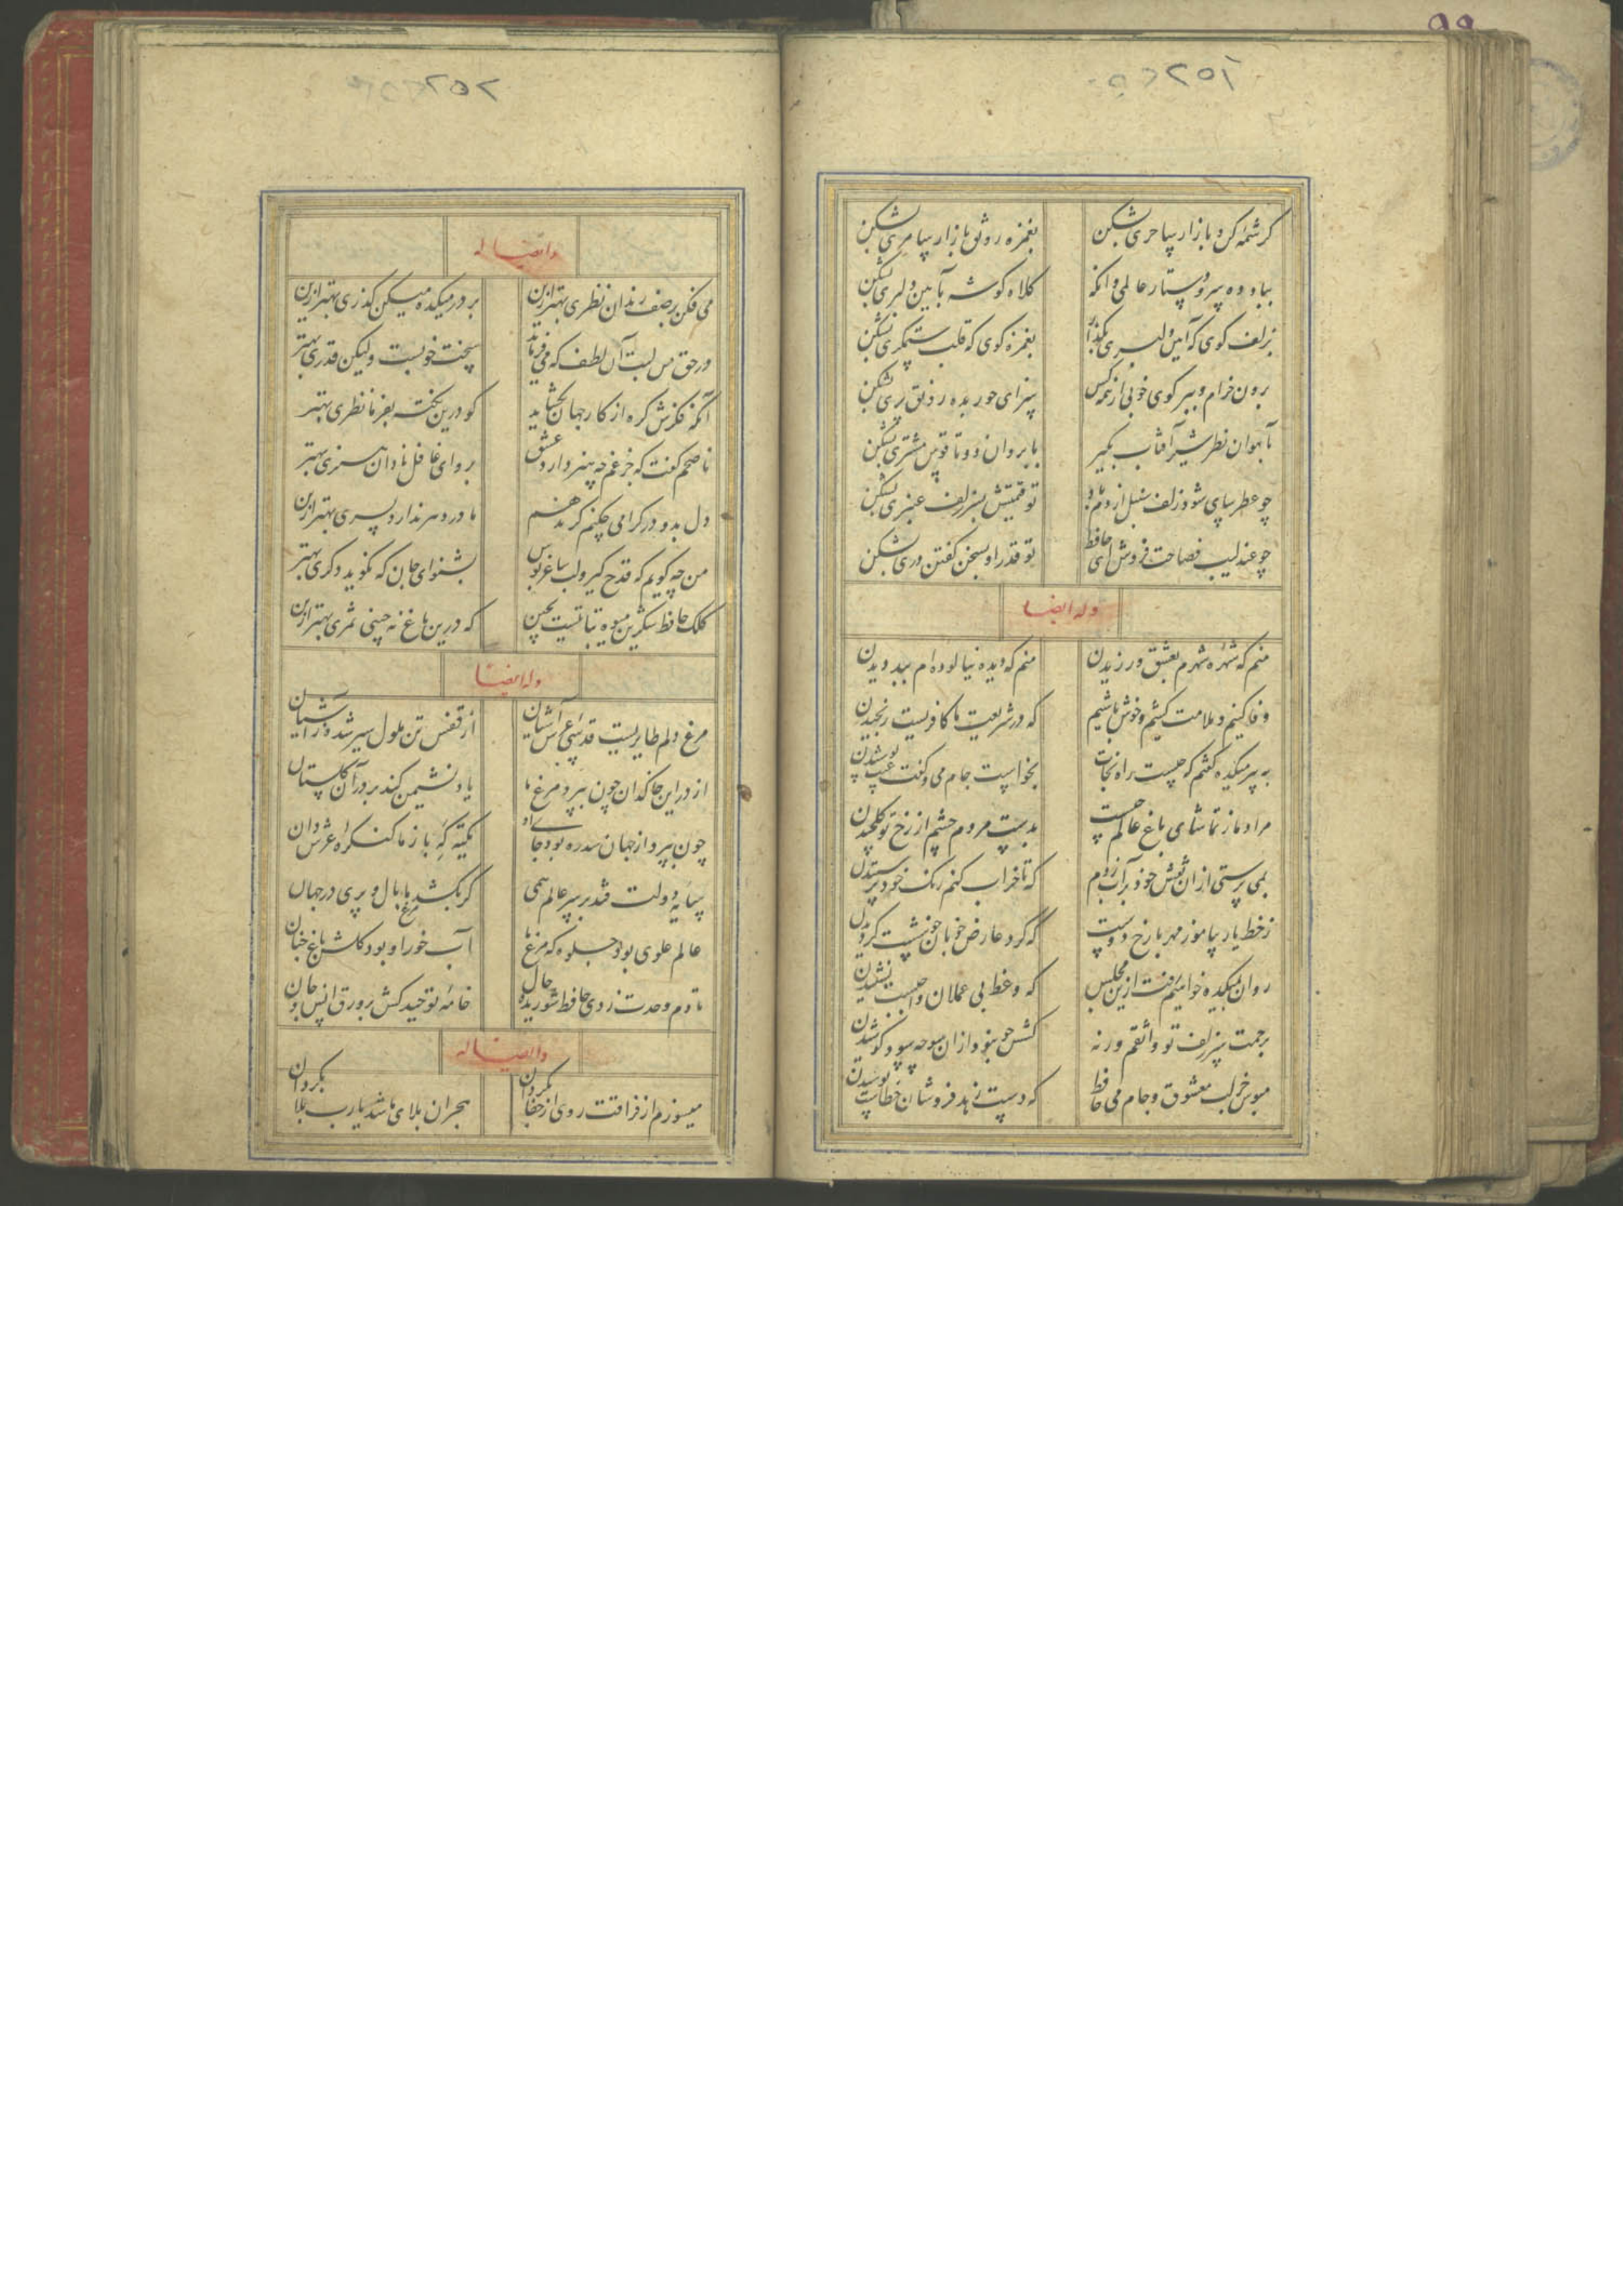 ۲۵۱
کرشمه کن و بازار ساحری بشکن
بغمزه رونق بازار سامری بشکن
بباد ده سر و دستار عالمی وانکه
کلاه کوشه بآیین دلبری بشکن
بزلف کوی که آیین دلبری بگذار
بغمزه کوی که قلب ستمکری بشکن
برون خرام و ببر کوی خوبی از همه کس
سزای حور بده رونق پری بشکن
بآهوان نظر شیر آفتاب بگیر
بابروان دوتا قوس مشتری بشکن
چو عطرسای شود زلف سنبل از دم باد
تو قیمتش بسر زلف عنبری بشکن
چو عندلیب فصاحت فروش ای حافظ
تو قدر او بسخن گفتن دری بشکن
وله ایضا
منم که شهره شهرم بعشق ورزیدن
منم که دیده نیالوده‌ام ببد دیدن
وفا کنیم و ملامت کشیم و خوش باشیم
که در شریعت ما کافریست رنجیدن
به پیر میکده گفتم که چیست راه نجات
بخواست جام می و گفت عیب پوشیدن
مراد ما ز تماشای باغ عالم چیست
بدست مردم چشم از رخ تو گل چیدن
بمی پرستی از ان نقش خود بر آب زدم
که تا خراب کنم نقش خود پرستیدن
ز خط یار بیاموز مهر با رخ دوست
که کرد عارض خوبان خوشست کردیدن
روان بمیکده خواهیم رفت ازین مجلس
که وعظ بی عملان واجبست نشنیدن
برحمت سر زلف تو واثقم ورنه
کشش چو نبود از ان سو چه سود کوشیدن
مبوس جز لب معشوق و جام می حافظ
که دست زهد فروشان خطاست بوسیدن
۲۵۲
وایضا له
می فکن بر صف رندان نظری بهتر ازین
بر در میکده میکن گذری بهتر ازین
در حق من لبت آن لطف که می‌فرماید
سخت خوبست ولیکن قدری بهتر
آنکه فکرش کره از کار جهان بگشاید
کو درین نکته بفرما نظری بهتر
ناصحم گفت که جز غم چه هنر دارد عشق
برو ای غافل نادان هنری بهتر
دل بدو در کرامی چکنم کر ندهم
مادر دهر ندارد پسری بهتر ازین
من چه کویم که قدح کیر و لب ساغر بوس
بشنو ای جان که نکوید دکری بهتر
کلک حافظ شکرین میوه نباتیست بچین
که درین باغ نه چینی ثمری بهتر ازین
وله ایضا
مرغ دلم طایریست قدسی عرش آشیان
از قفس تن ملول سیر شده از آشیان
از در این خاکدان چون بپرد مرغ ما
باز نشیمن کند بر در آن گلستان
چون بپرد از جهان سدره بود جای او
تکیه که باز ما کنکره عرش دان
سایه دولت فتد بر سر عالم همی
کر بکشد مرغ ما بال و پری در جهان
عالم علوی بود جلوه که مرغ ما
آب خور او بود کلشن باغ جنان
تا دم وحدت زدی حافظ شوریده حال
خامه توحید کش بر ورق انس و جان
وایضا له
میسوزم از فراقت روی از جفا بگردان
هجران بلای ما شد یارب بلا بگردان